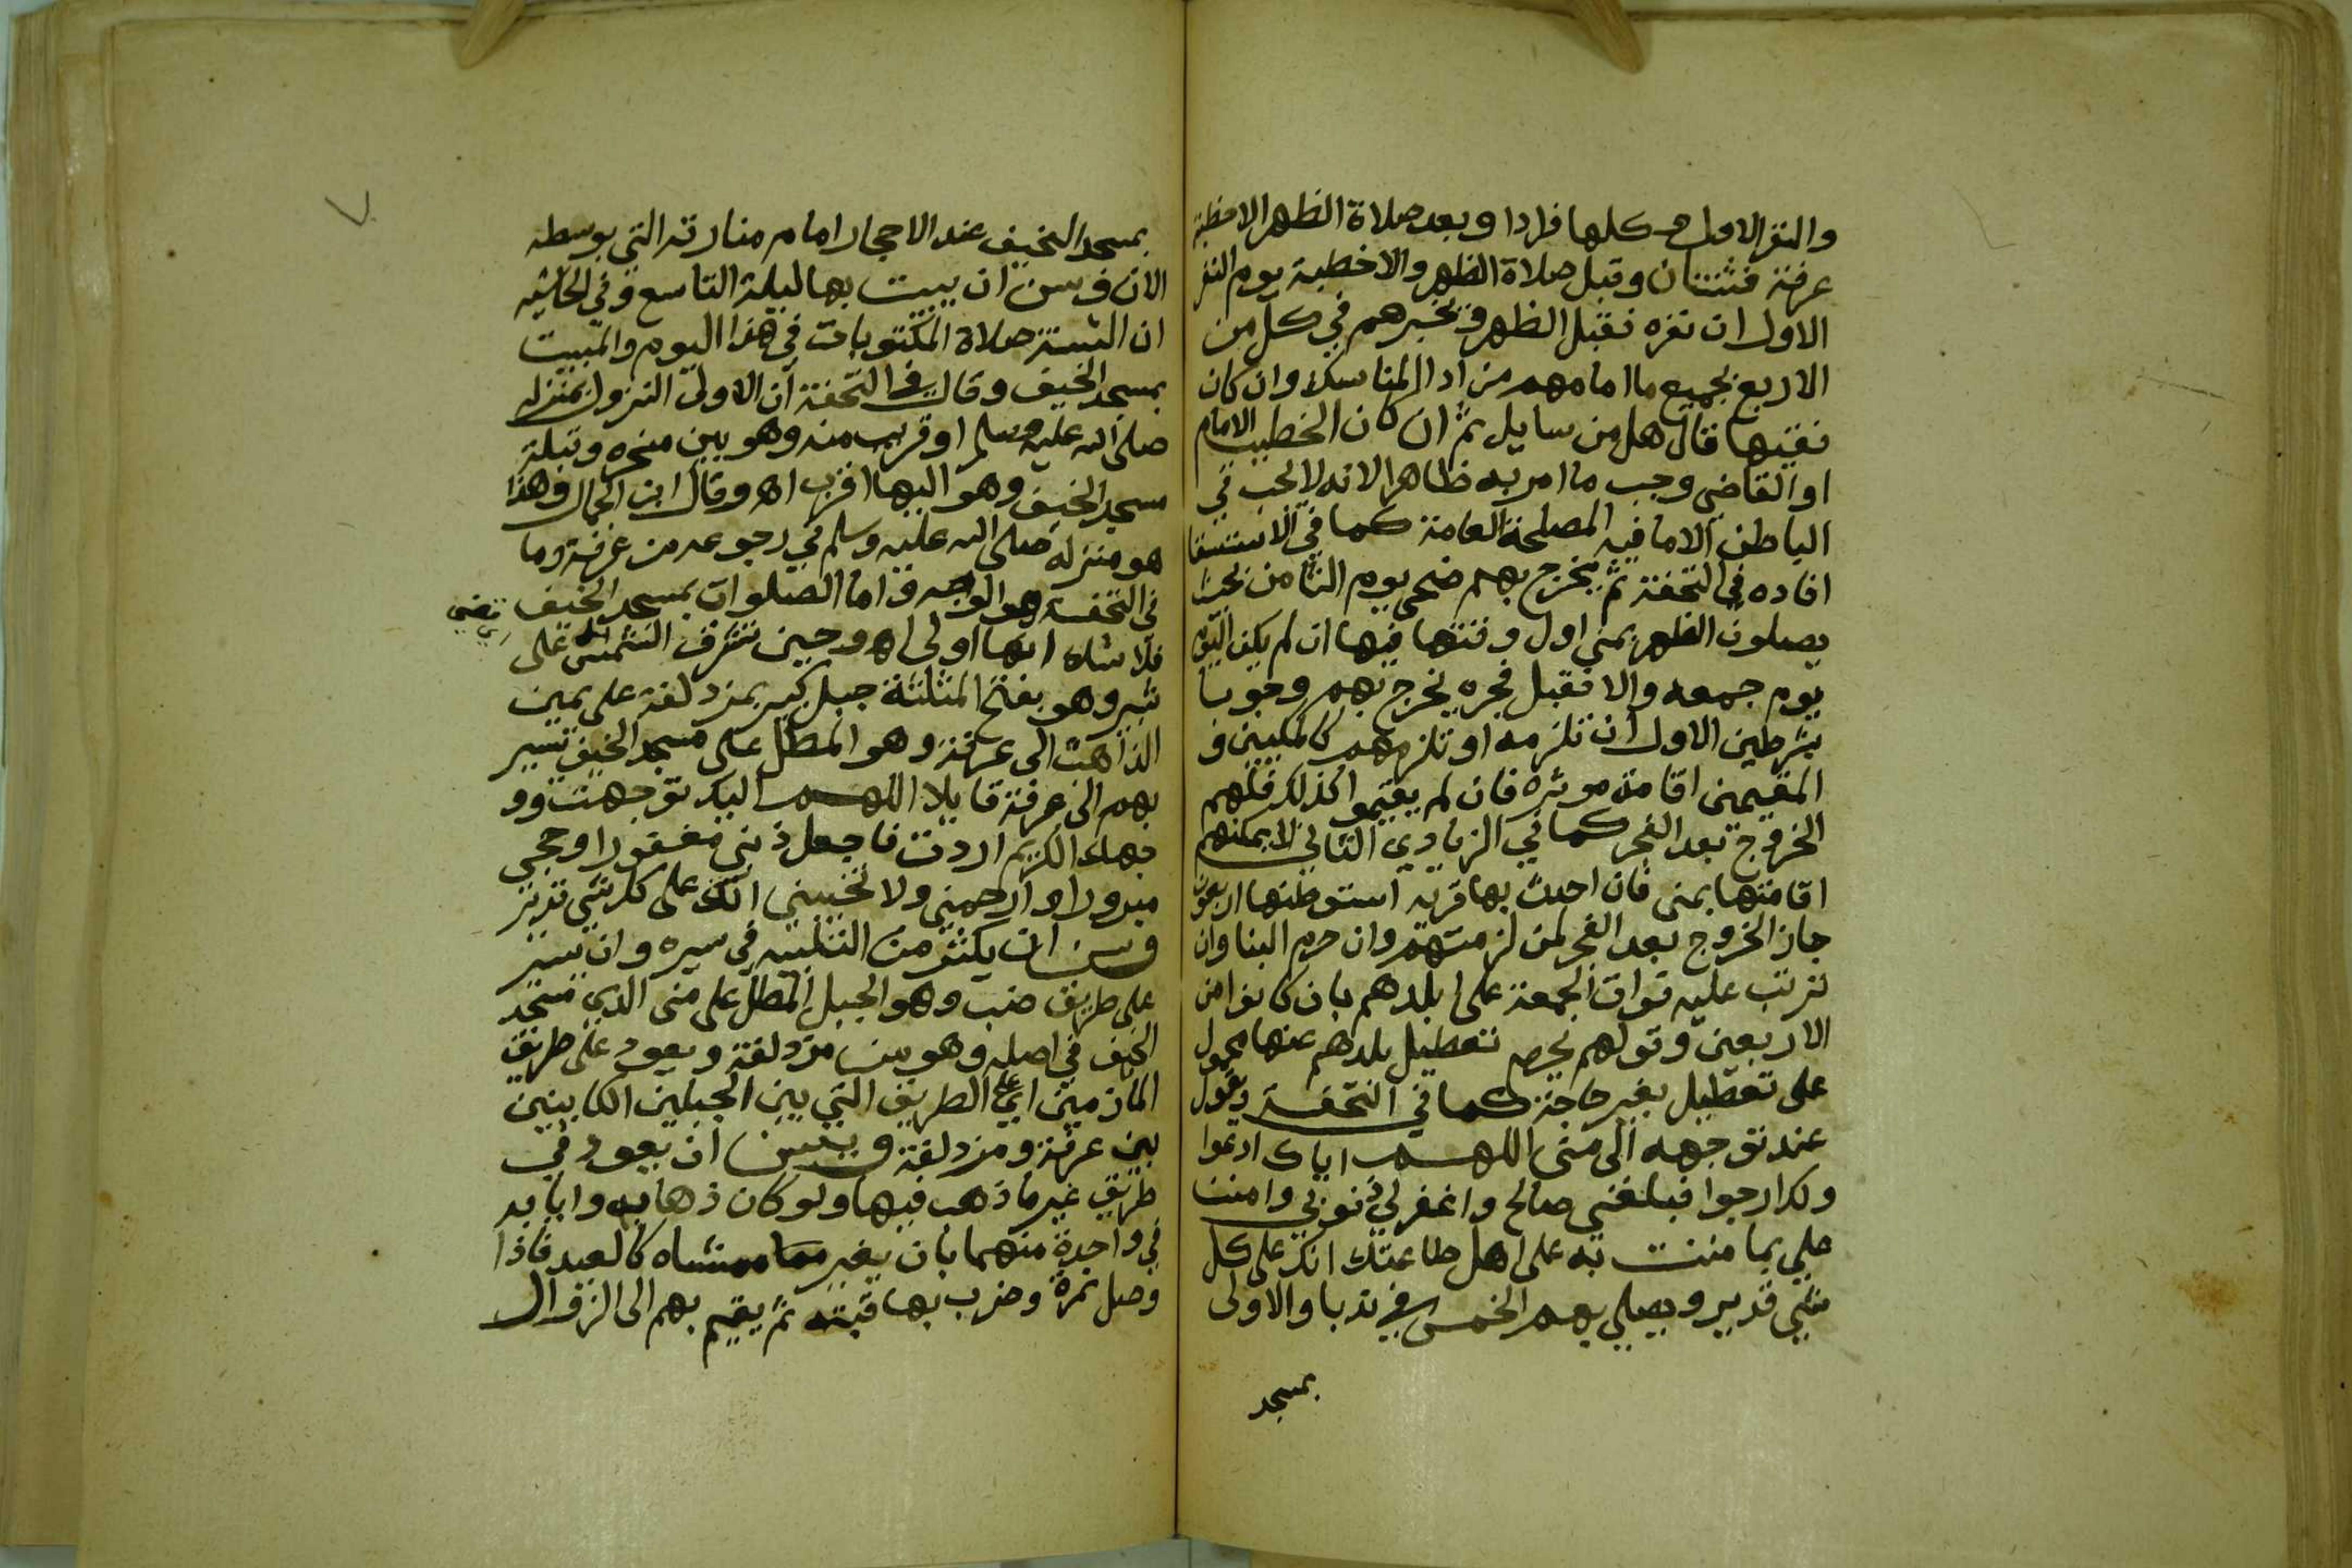 والنفر الاول وكلها فرادا وبعد صلاة الظهر الاخطبة
عرفة فثنتان وقبل صلاة الظهر والاخطبة يوم النفر
الاول ان نفره فقبل الظهر ويخبرهم في كل من
الاربع بجميع ما امامهم من اداء المناسك وان كان
فقيها قال هل من سايل ثم ان كان الخطيب الامام
او القاضي وجب ما امر به ظاهرا لانه لا يجب في
الباطن الا ما فيه المصلحة العامة كما في الاستسقا
افاده في التحفة ثم يخرج بهم ضحى يوم الثامن بحيث
يصلون الظهر بمنى اول وقتها فيها ان لم يكن اليوم
يوم جمعه والا فقبل فجره يخرج بهم وجوبا
بشرطين الاول ان تلزمه او تلزمهم كالمكيين و
المقيمين اقامة موثره فان لم يقيموا كذلك فلهم
الخروج بعد الفجر كما في الزيادي الثاني لا يمكنهم
اقامتها بمنى فان احدث بها قرية استوطنها اربعون
جاز الخروج بعد الفجر لمن لزمتهم وان حرم البنا وان
ترتب عليه فوات الجمعة على بلدهم بان كانوا من
الاربعين وقولهم يحرم تعطيل بلدهم عنها محمول
على تعطيل بغير حاجة كما في التحفة ويقول
عند توجهه الى منى اللهم اياك ادعوا
ولك ارجوا فبلغني صالح واغفر لي ذنوبي وامنن
علي بما مننت به على اهل طاعتك انك على كل
شي قدير ويصلي بهم الخمس في ندبا والاولى
بمسجد
بمسجد الخيف عند الاحجار امام منارته التي بوسطه
الان وسن ان يبيت بها ليلة التاسع وفي الحاشيه
ان السنة صلاة المكتوبات في هذا اليوم والمبيت
بمسجد الخيف وقال في التحفة ان الاولى النزول بمنزله
صلى الله عليه وسلم او قريب منه وهو بين منحره وقبلة
مسجد الخيف وهو اليها اقرب اه وقال ابن الجمال وهذا
هو منزله صلى الله عليه وسلم في رجوعه من عرفة وما
في التحفة هو الوجه واما الصلوات بمسجد الخيف
فلا شك انها اولى اه وحين تشرق الشمس على
تضي
ثبير وهو بفتح المثلثة جبل كبير بمزدلفة على يمين
الذاهب الى عرفة وهو المطل على مسجد الخيف يسير
بهم الى عرفة قايلا اللهم اليك توجهت وو
جهك الكريم اردت فاجعل ذنبي مغفورا وحجي
مبرورا وارحمني ولا تخيبني انك على كل شي قدير
وسن ان يكثر من التلبيه في سيره وان يسير
على طريق ضب وهو الجبل المطل على منى الذي مسجد
الخيف في اصله وهو من مزدلفة ويعود على طريق
المازمين اي على الطريق التي بين الجبلين الكاينين
بين عرفة ومزدلفة ويسن ان يعود في
طريق غير ما ذهب فيها ولو كان ذهابه وايابه
في واحدة منهما بان يغير ممشاه كالعيد فاذا
وصل نمرة وضرب بها قبته ثم يقيم بهم الى الزوال